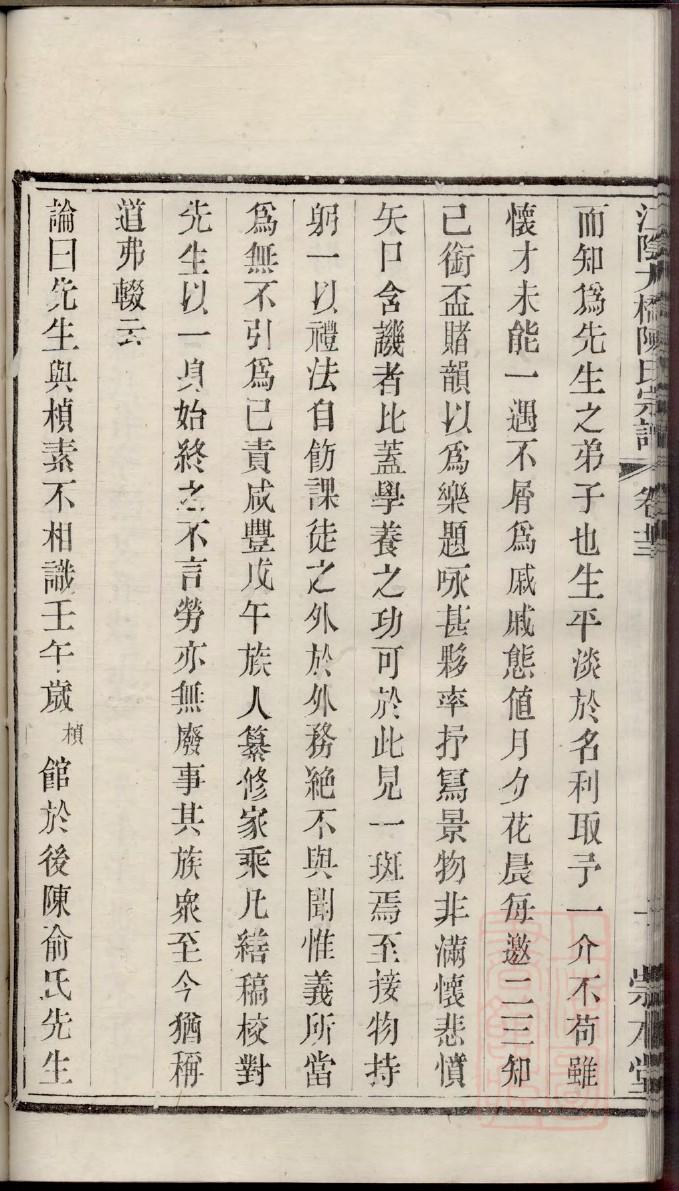 江陰大橋陳氏宗譜 卷 崇本堂
而知爲先生之弟子也生平淡於名利取予一介不苟雖
懷才未能一遇不屑爲戚戚態値月夕花晨每邀二三知
己銜盃賭韻以爲樂題咏甚夥率抒寫景物非滿懷悲憤
矢口含譏者比蓋學養之功可於此見一斑焉至接物持
躬一以禮法自飭課徒之外於外務絕不與聞惟義所當
爲無不引爲己責咸豐戊午族人纂修家乘凡繕稿校對
先生以一身始終之不言勞亦無廢事其族衆至今猶稱
道弗輟云
論曰先生與楨素不相識壬午歲楨館於後陳俞氏先生